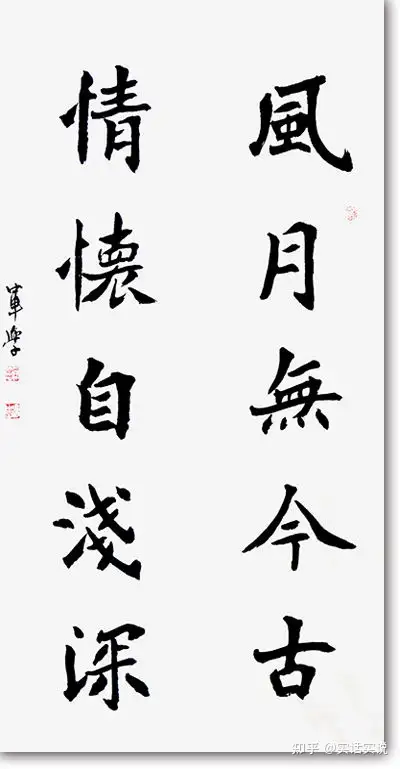 風月無今古
情懷自淺深
軍學
知乎 @实话实说